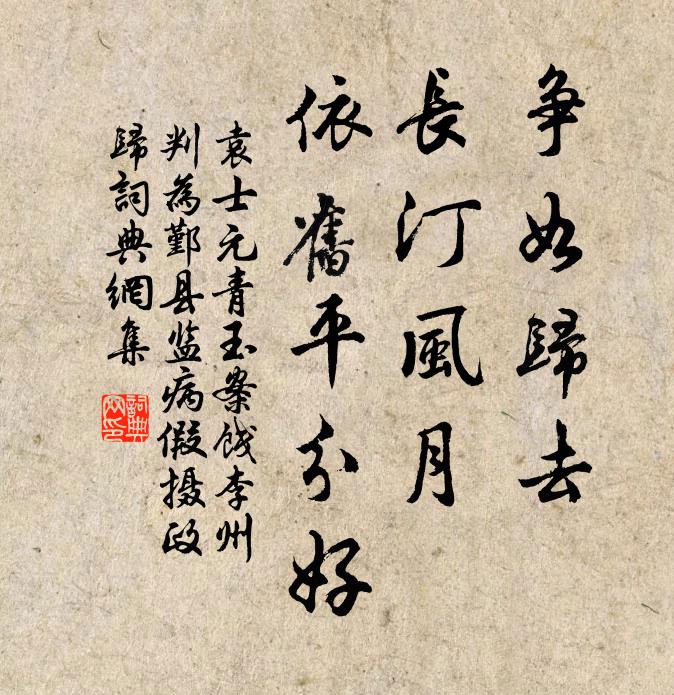 争如歸去
長汀風月
依舊平分好
袁士元青玉案餞李州
判為鄞县监病假摄政
歸詞典網集
詞典
网印